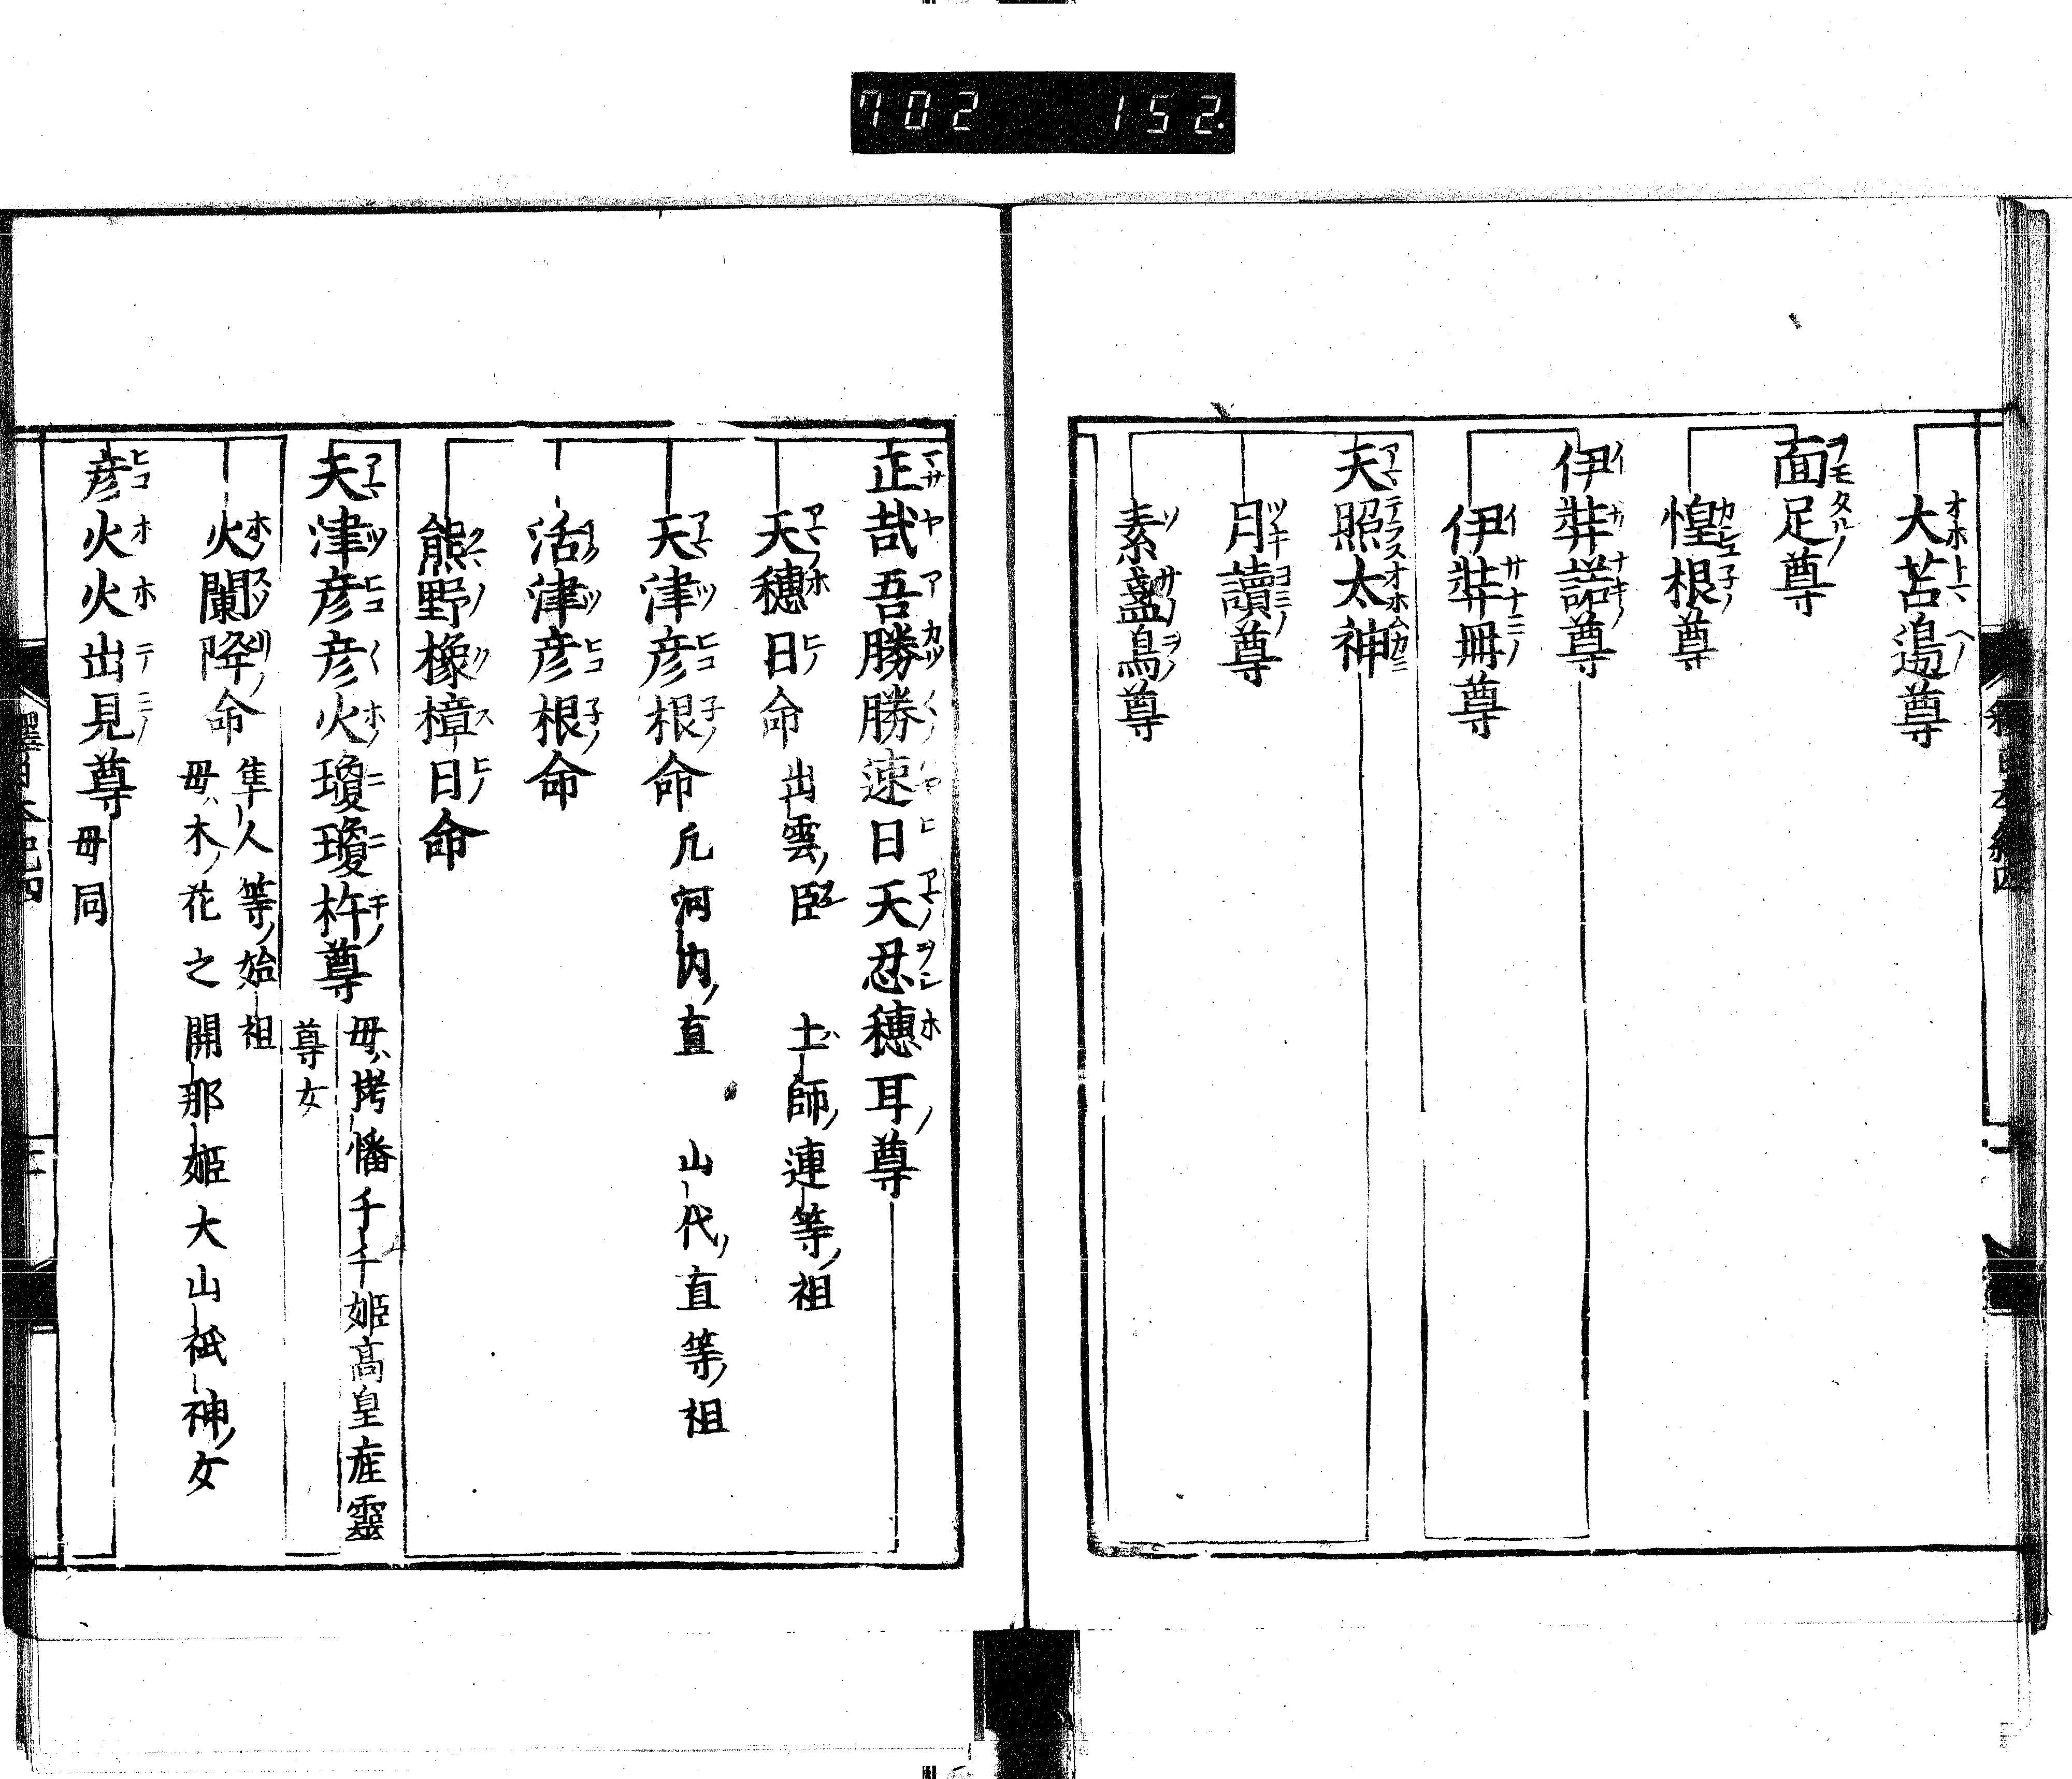 702 152
大苫邉尊
面足尊
惶根尊
伊弉諾尊
伊弉冊尊
天照太神
月讀尊
素盞烏尊
正哉吾勝勝速日天忍穗耳尊
天穗日命 出雲臣 土師連等祖
天津彦根命 凡河内直 山代直等祖
活津彦根命
熊野櫲樟日命
天津彦彦火瓊瓊杵尊 母拷幡千千姫高皇産靈
尊女
火闌降命 隼人等始祖
母木花之開那姫大山祇神女
彦火火出見尊 母同